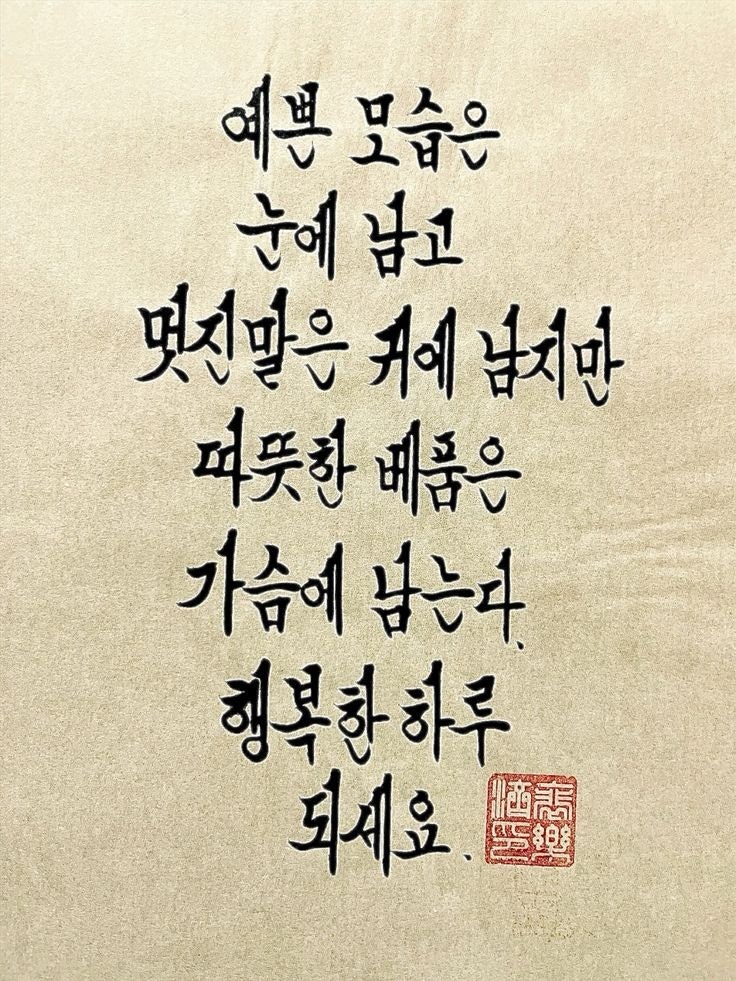 예쁜 모습은
눈에 남고
멋진말은 귀에 남지만
따뜻한 베품은
가슴에 남는다.
행복한 하루
되세요.